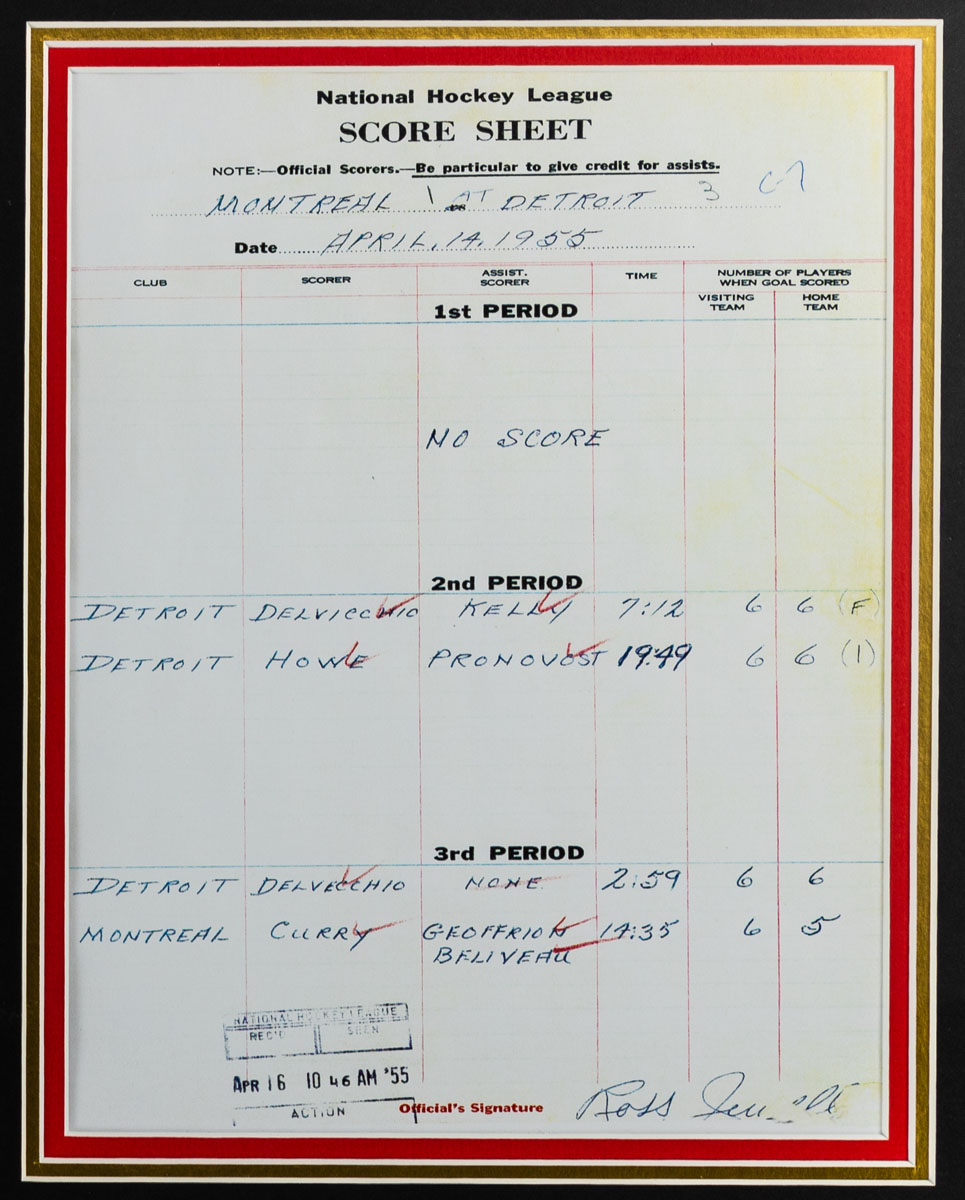 National Hockey League
SCORE SHEET
NOTE:—Official Scorers.—Be particular to give credit for assists.
MONTREAL 1 AT DETROIT 3
Date APRIL. 14. 1955
CLUB SCORER ASSIST. SCORER TIME NUMBER OF PLAYERS WHEN GOAL SCORED
VISITING TEAM HOME TEAM
1st PERIOD
NO SCORE
2nd PERIOD
DETROIT DELVICCHIO KELLY 7:12 6 6 (F)
DETROIT HOWE PRONOVOST 19:49 6 6 (1)
3rd PERIOD
DETROIT DELVECCHIO NONE 2:59 6 6
MONTREAL CURRY GEOFFRION 14:35 6 5
BELIVEAU
NATIONAL HOCKEY LEAGUE
REC'D SEEN
APR 16 10 46 AM '55
ACTION
Official's Signature Ross